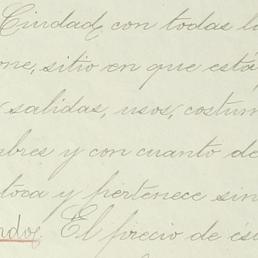 Ciudad, con todas l
ne, sitio en que está
salidas, usos, costum
bres y con cuanto de
toca y pertenece sin
ndo, El precio de es